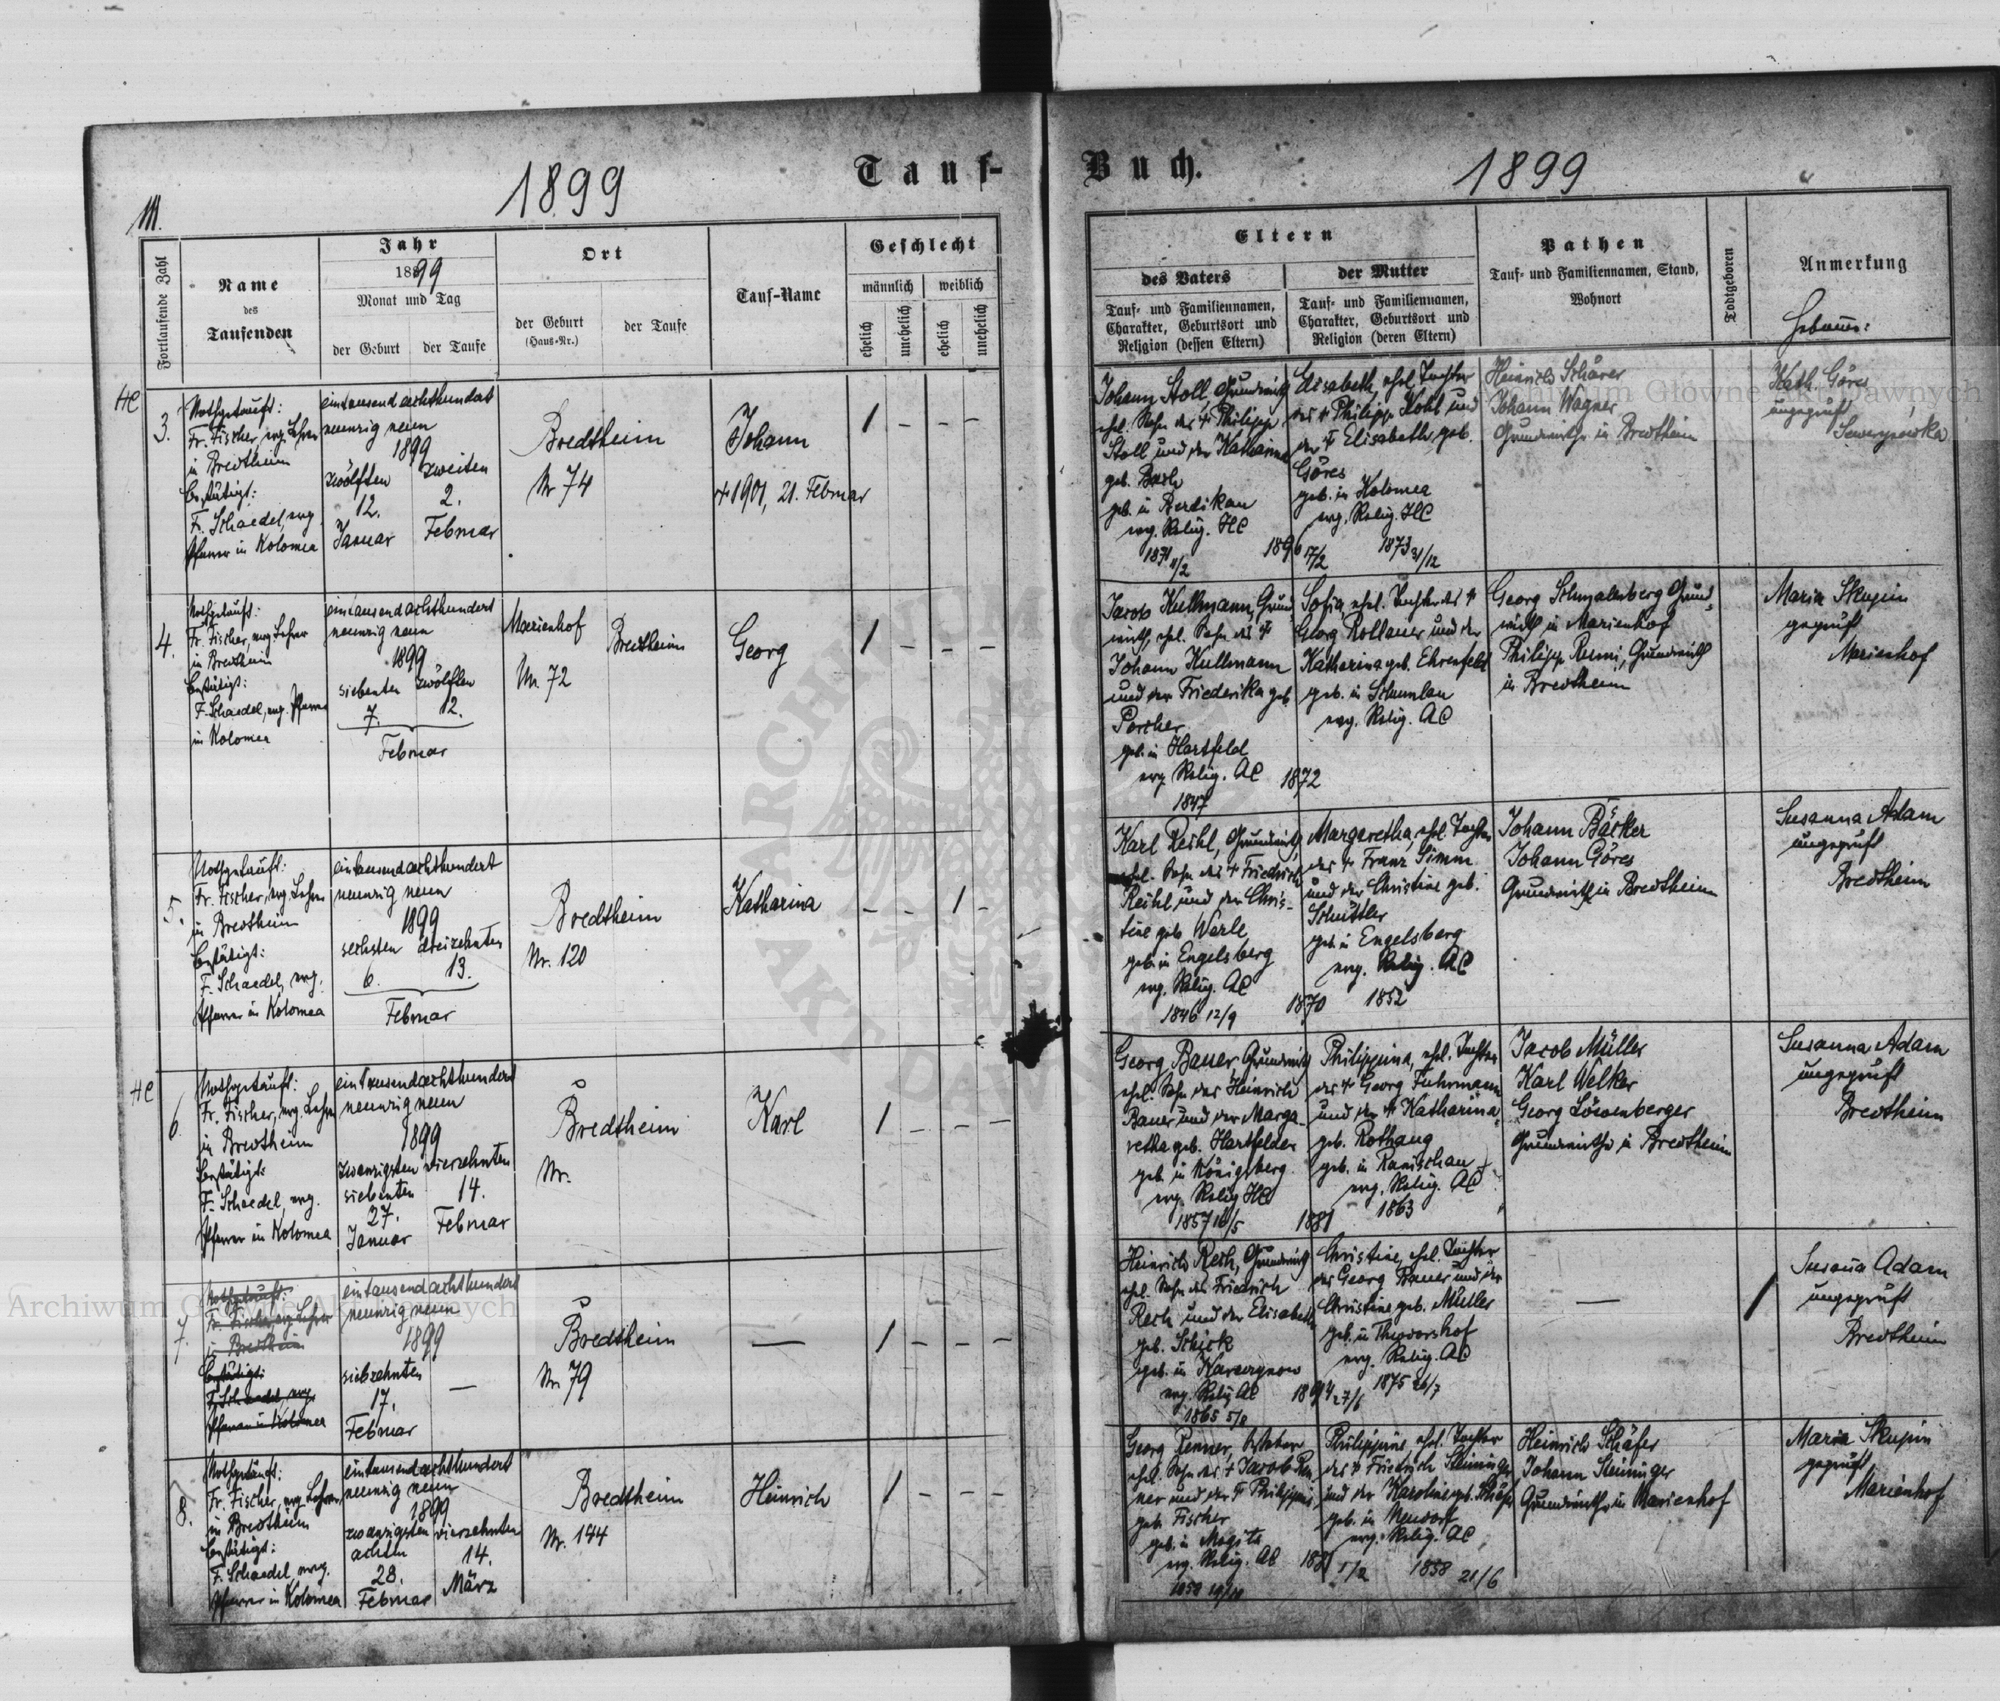 1899
Tauf-
Buch.
1899
III.
Fortlaufende Zahl
Name
des
Taufenden
Jahr
1899
Monat und Tag
der Geburt
der Taufe
Ort
der Geburt
(Haus-Nr.)
der Taufe
Tauf-Name
Geschlecht
männlich
weiblich
ehelich
unehelich
ehelich
unehelich
Eltern
des Vaters
Tauf- und Familiennamen,
Charakter, Geburtsort und
Religion (dessen Eltern)
der Mutter
Tauf- und Familiennamen,
Charakter, Geburtsort und
Religion (deren Eltern)
Pathen
Tauf- und Familiennamen, Stand,
Wohnort
Todtgeboren
Anmerkung
Hebamme:
HC
3.
Nothgetauft:
Fr. Fischer, evg. Lehrer
in Bredtheim
bestätigt:
F. Schaedel, evg.
Pfarrer in Kolomea
eintausendachthundert
neunzig neun
1899
zwölften zweiten
12. 2.
Januar Februar
Bredtheim
Nr 74
Johann
+ 1901, 21. Februar
1 - - -
Johann Stoll, Grundwirth
ehel. Sohn des + Philipp
Stoll und der Katharina
geb.
geb. in Berdikau
evg. Relig. HC
1871 11/2
1896 17/2
Elisabeth, ehel. Tochter
des + Philipp Kohl und
der + Elisabeth, geb.
Göres
geb. in Kolomea
evg. Relig. HC
1873 31/12
Heinrich Schärer
Johann Wagner
Grundwirthe in Bredtheim
Kath. Göres
ungeprüft
Sewerynówka
4.
Nothgetauft:
Fr. Fischer, evg. Lehrer
in Bredtheim
bestätigt:
F. Schaedel, evg. Pfarrer
in Kolomea
eintausendachthundert
neunzig neun
1899
siebenten zwölften
7. 12.
Februar
Marienhof
Nr. 72
Bredtheim
Georg
1 - - -
Jacob Kullmann, Grund
wirth, ehel. Sohn des +
Johann Kullmann
und der Friederika geb.
Porcher
geb. in Hartfeld
evg. Relig. AC
1847
1872
Sofia, ehel. Tochter des +
Georg Kollauer und der
Katharina geb. Ehrenfeld
geb. in Schumlau
evg. Relig. AC
Georg Schmalenberg Grund-
wirth in Marienhof
Philipp Rumi, Grundwirth
in Bredtheim
Maria Skupin
geprüft
Marienhof
5.
Nothgetauft:
Fr. Fischer, evg. Lehrer
in Bredtheim
bestätigt:
F. Schaedel, evg.
Pfarrer in Kolomea
eintausendachthundert
neunzig neun
1899
sechsten dreizehnten
6. 13.
Februar
Bredtheim
Nr. 120
Katharina
- - 1 -
Karl Reihl, Grundwirth,
ehel. Sohn des + Friedrich
Reihl, und der Chris-
tine geb. Werle
geb. in Engelsberg
evg. Relig. AC
1846 12/9
1870
Margaretha, ehel. Tochter
des + Franz Simm
und der Christine geb.
Schüttler
geb. in Engelsberg
evg. Relig. AC
1852
Johann Bäcker
Johann Göres
Grundwirthe in Bredtheim
Susanna Adam
ungeprüft
Bredtheim
HC
6
Nothgetauft:
Fr. Fischer, evg. Lehrer
in Bredtheim
bestätigt:
F. Schaedel, evg.
Pfarrer in Kolomea
eintausendachthundert
neunzig neun
1899
zwanzigsten vierzehnten
siebenten 14.
27.
Januar Februar
Bredtheim
Nr.
Karl
1 - - -
Georg Bauer, Grundwirth
ehel. Sohn des Heinrich
Bauer und der Marga
retha geb. Hartfelder
geb. in Königsberg
evg. Relig. HC
1857 16/5
1881
Philippina, ehel. Tochter
des + Georg Fuhrmann
und der + Katharina
geb. Rothaug
geb. in Ranischau
evg. Relig. AC
1863
Jacob Müller
Karl Welker
Georg Löwenberger
Grundwirthe in Bredtheim
Susanna Adam
ungeprüft
Bredtheim
7.
Nothgetauft:
Fr. Fischer, evg. Lehrer
in Bredtheim
bestätigt:
F. Schaedel, evg.
Pfarrer in Kolomea
eintausendachthundert
neunzig neun
1899
siebzehnten
17. —
Februar
Bredtheim
Nr. 79
—
1 - - -
Heinrich Rech, Grundwirth
ehel. Sohn des Friedrich
Rech und der Elisabeth
geb. Schick
geb. in
evg. Relig. AC
1865 5/8
1894 27/6
Christine, ehel. Tochter
des Georg Bauer und der
Christine geb. Müller
geb. in Theodorshof
evg. Relig. AC
1875 26/7
—
1
Susana Adam
ungeprüft
Bredtheim
8.
Nothgetauft:
Fr. Fischer, evg. Lehrer,
in Bredtheim
bestätigt:
F. Schaedel, evg.
Pfarrer in Kolomea
eintausendachthundert
neunzig neun
1899
zwanzigsten vierzehnten
achten 14.
28.
Februar März
Bredtheim
Nr. 144
Heinrich
1 - - -
Georg Renner,
ehel. Sohn des + Jacob Ren
ner und der + Philippine
geb. Fischer
geb. in Mogila
evg. Relig. AC
1881 5/2
Philippine, ehel. Tochter
des + Friedrich Steininger
und der Karoline geb. Schäfer
geb. in Neudorf
evg. Relig. AC
1858 21/6
Heinrich Schäfer
Johann Steininger
Grundwirthe in Marienhof
Maria Skupin
geprüft
Marienhof
Archiwum Główne Akt Dawnych
Archiwum Główne Akt Dawnych